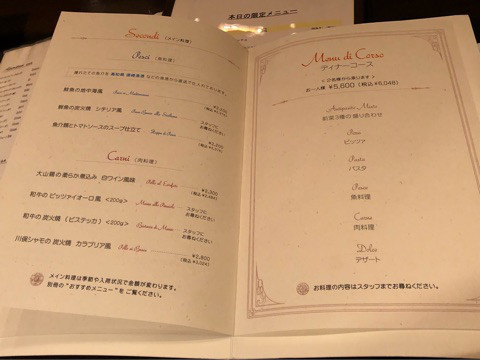 本日の限定メニュー
Secondi (メイン料理)
Pesci (魚料理)
鮮魚の地中海風
鮮魚の炭火焼 シチリア風
魚介類とトマトソースのスープ仕立て
スタッフに
お尋ねください
Carni (肉料理)
大山鶏の柔らか煮込み 白ワイン風味
和牛のピッツァイオーロ風 <200g>
スタッフに
お尋ねください
和牛の炭火焼 (ビステッカ) <200g>
スタッフに
お尋ねください
川俣シャモの炭火焼 カラブリア風
¥2,800
(税込¥3,024)
メイン料理は季節や入荷状況で金額が変わります。
別冊の"おすすめメニュー"をご覧ください。
Menu di Corso
ディナーコース
<2名様から承ります>
お一人様 ¥5,600 (税込¥6,048)
Antipasto Misto
前菜3種の盛り合わせ
Pizza
ピッツァ
Pasta
パスタ
Pesce
魚料理
Carne
肉料理
Dolce
デザート
お料理の内容はスタッフまでお尋ねください。